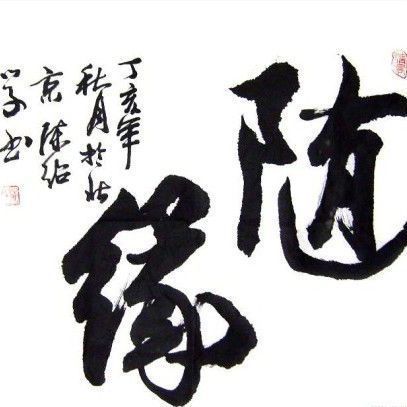 随
缘
丁亥年
秋月於北
京陈绍
学书